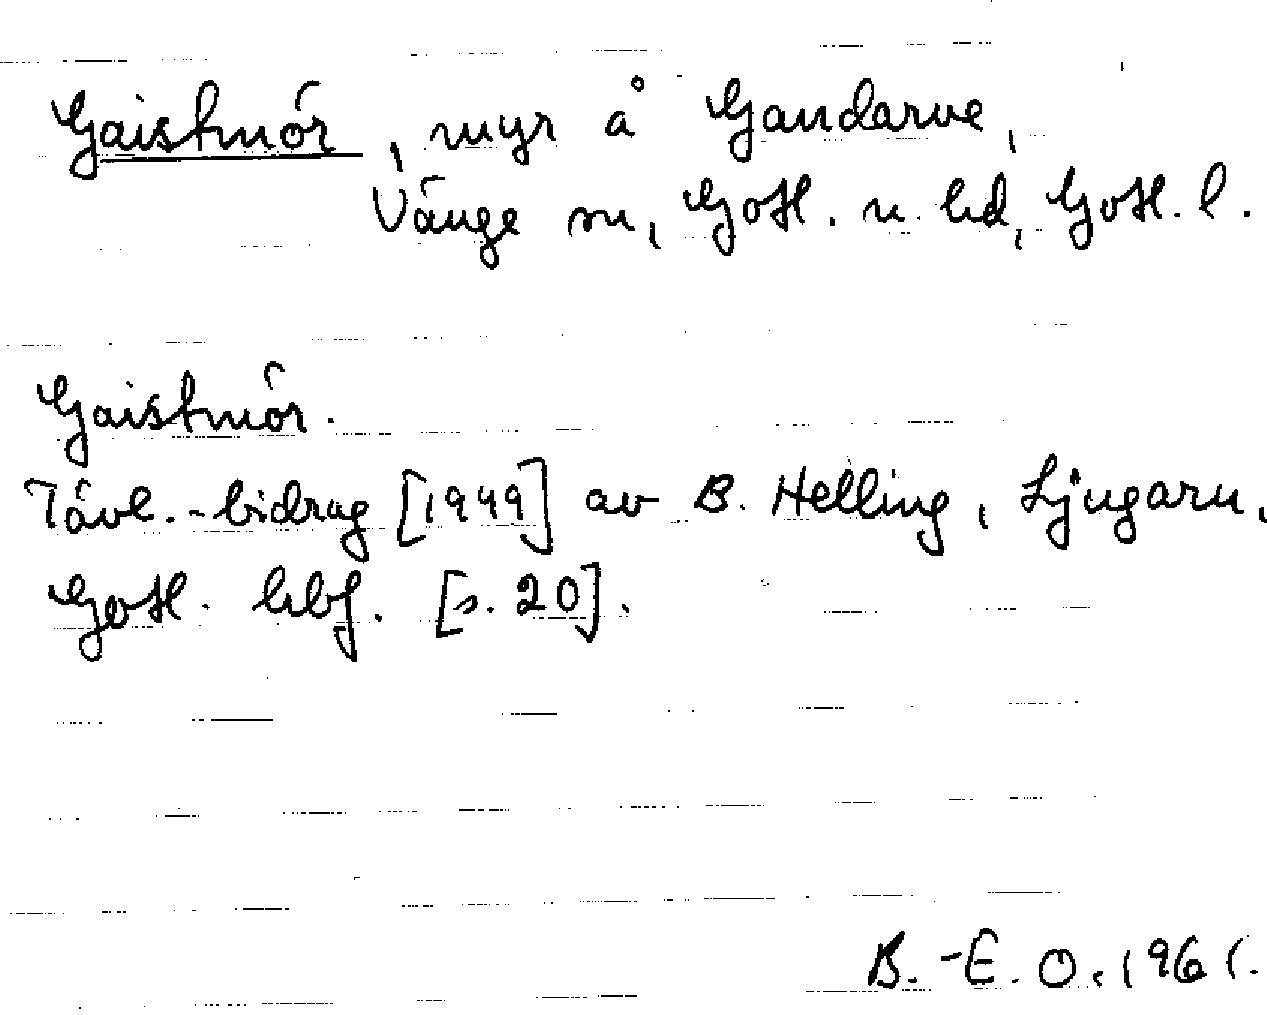 Gaistmör, myr å Gandarve,
Vänge sn, Gotl. n. hd, Gotl. l.
Gaistmör.
Tävl.-bidrag [1949] av B. Helling, Ljugarn,
Gotl. hbf. [s. 20].
B.-E. O. 1961.